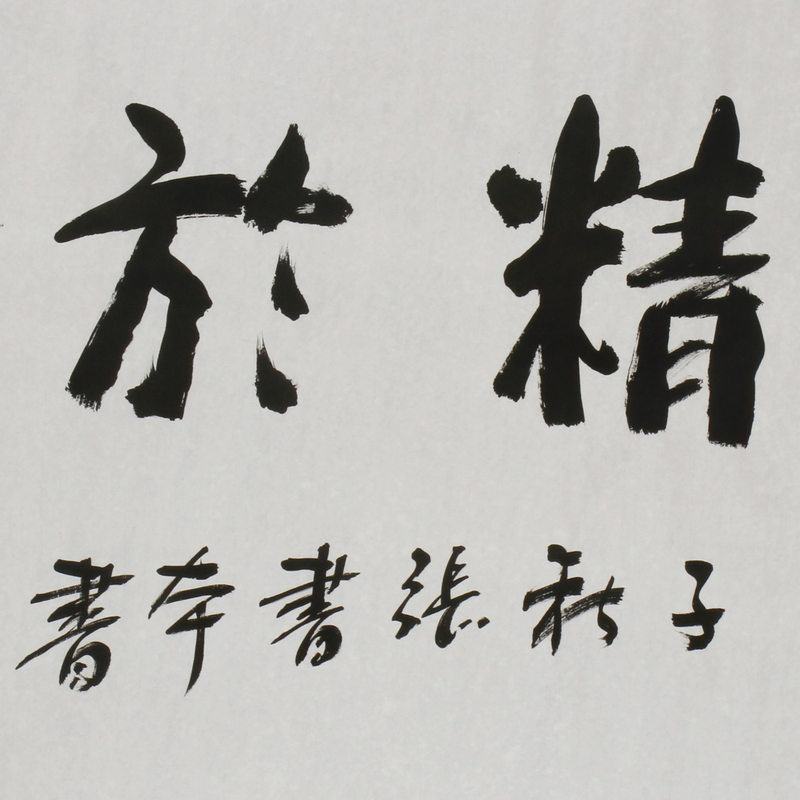 精於
子秋張書本書